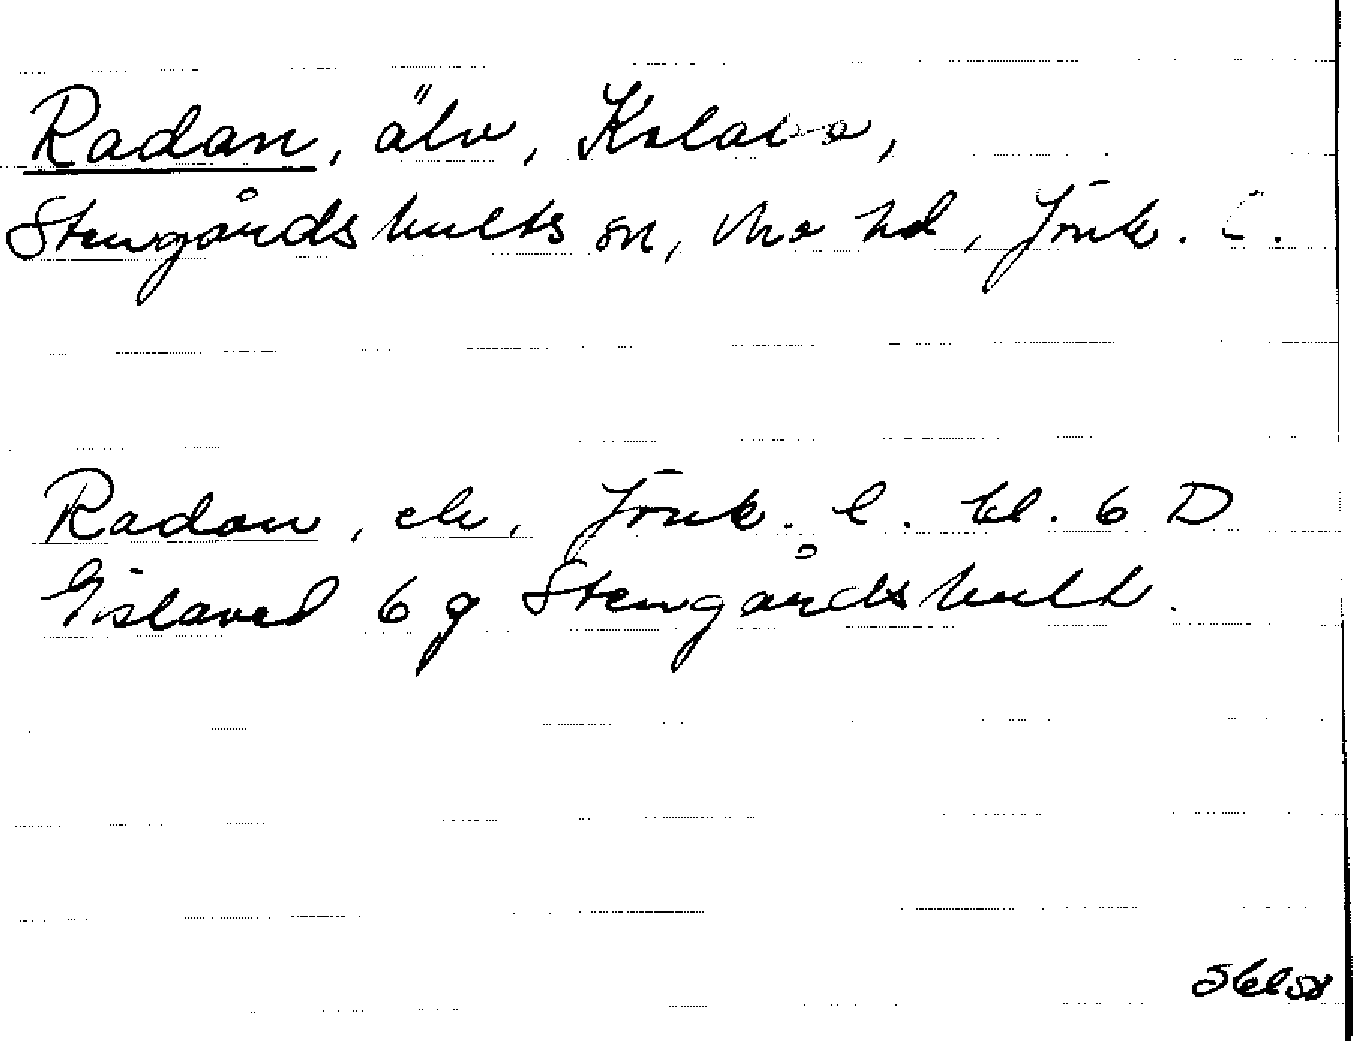 Radan, älv, Kolabo,
Stengårdshults sn, Mo hd, Jönk. l.
Radan, elv, Jönk. l. bl. 6 D
Gislaved 6 g Stengårdshult.